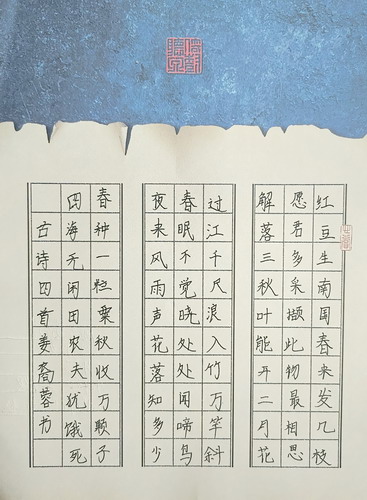 红豆生南国春来发几枝
愿君多采撷此物最相思
解落三秋叶能开二月花
过江千尺浪入竹万竿斜
春眠不觉晓处处闻啼鸟
夜来风雨声花落知多少
春种一粒粟秋收万颗子
四海无闲田农夫犹饿死
古诗四首姜裔蓉书